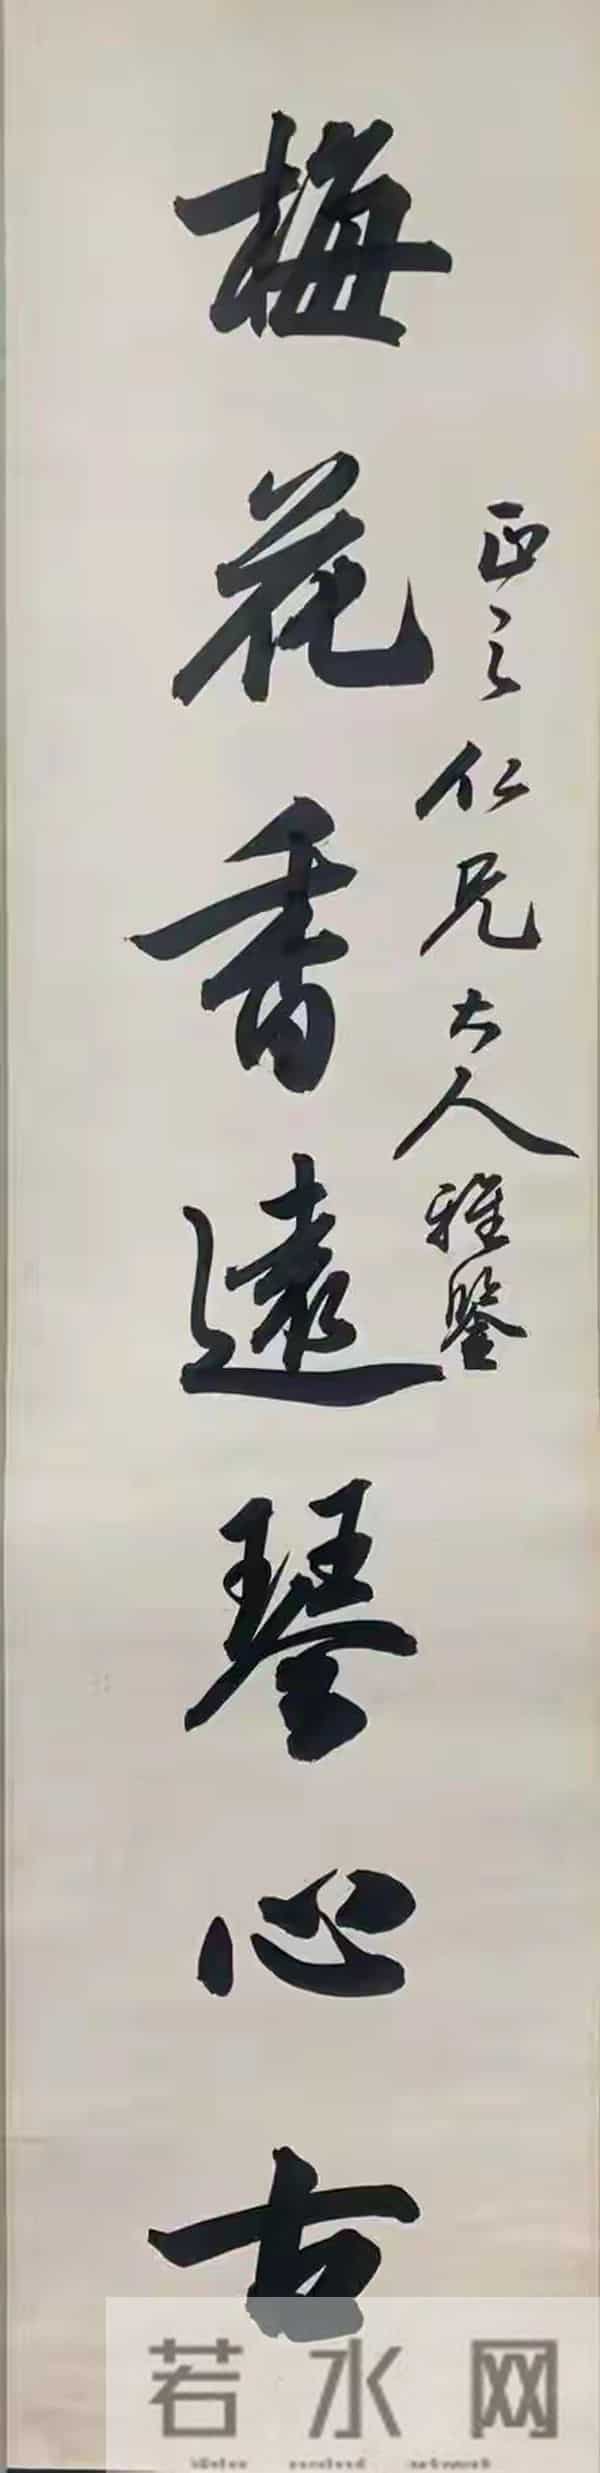 正之仁兄大人雅鑒
梅花香遠琴心古
若水网